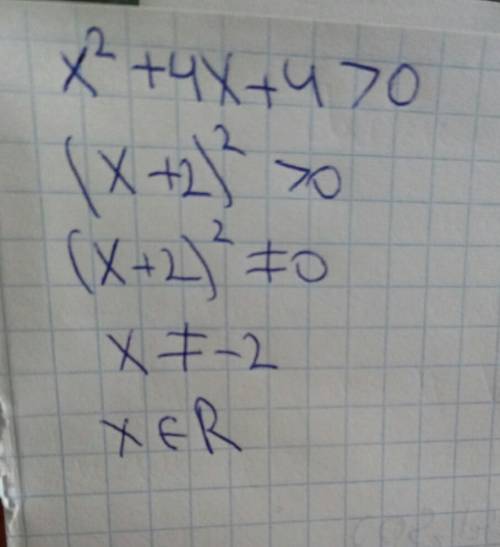 x² + 4x + 4 > 0
(x + 2)² > 0
(x + 2)² ≠ 0
x ≠ -2
x ∈ R